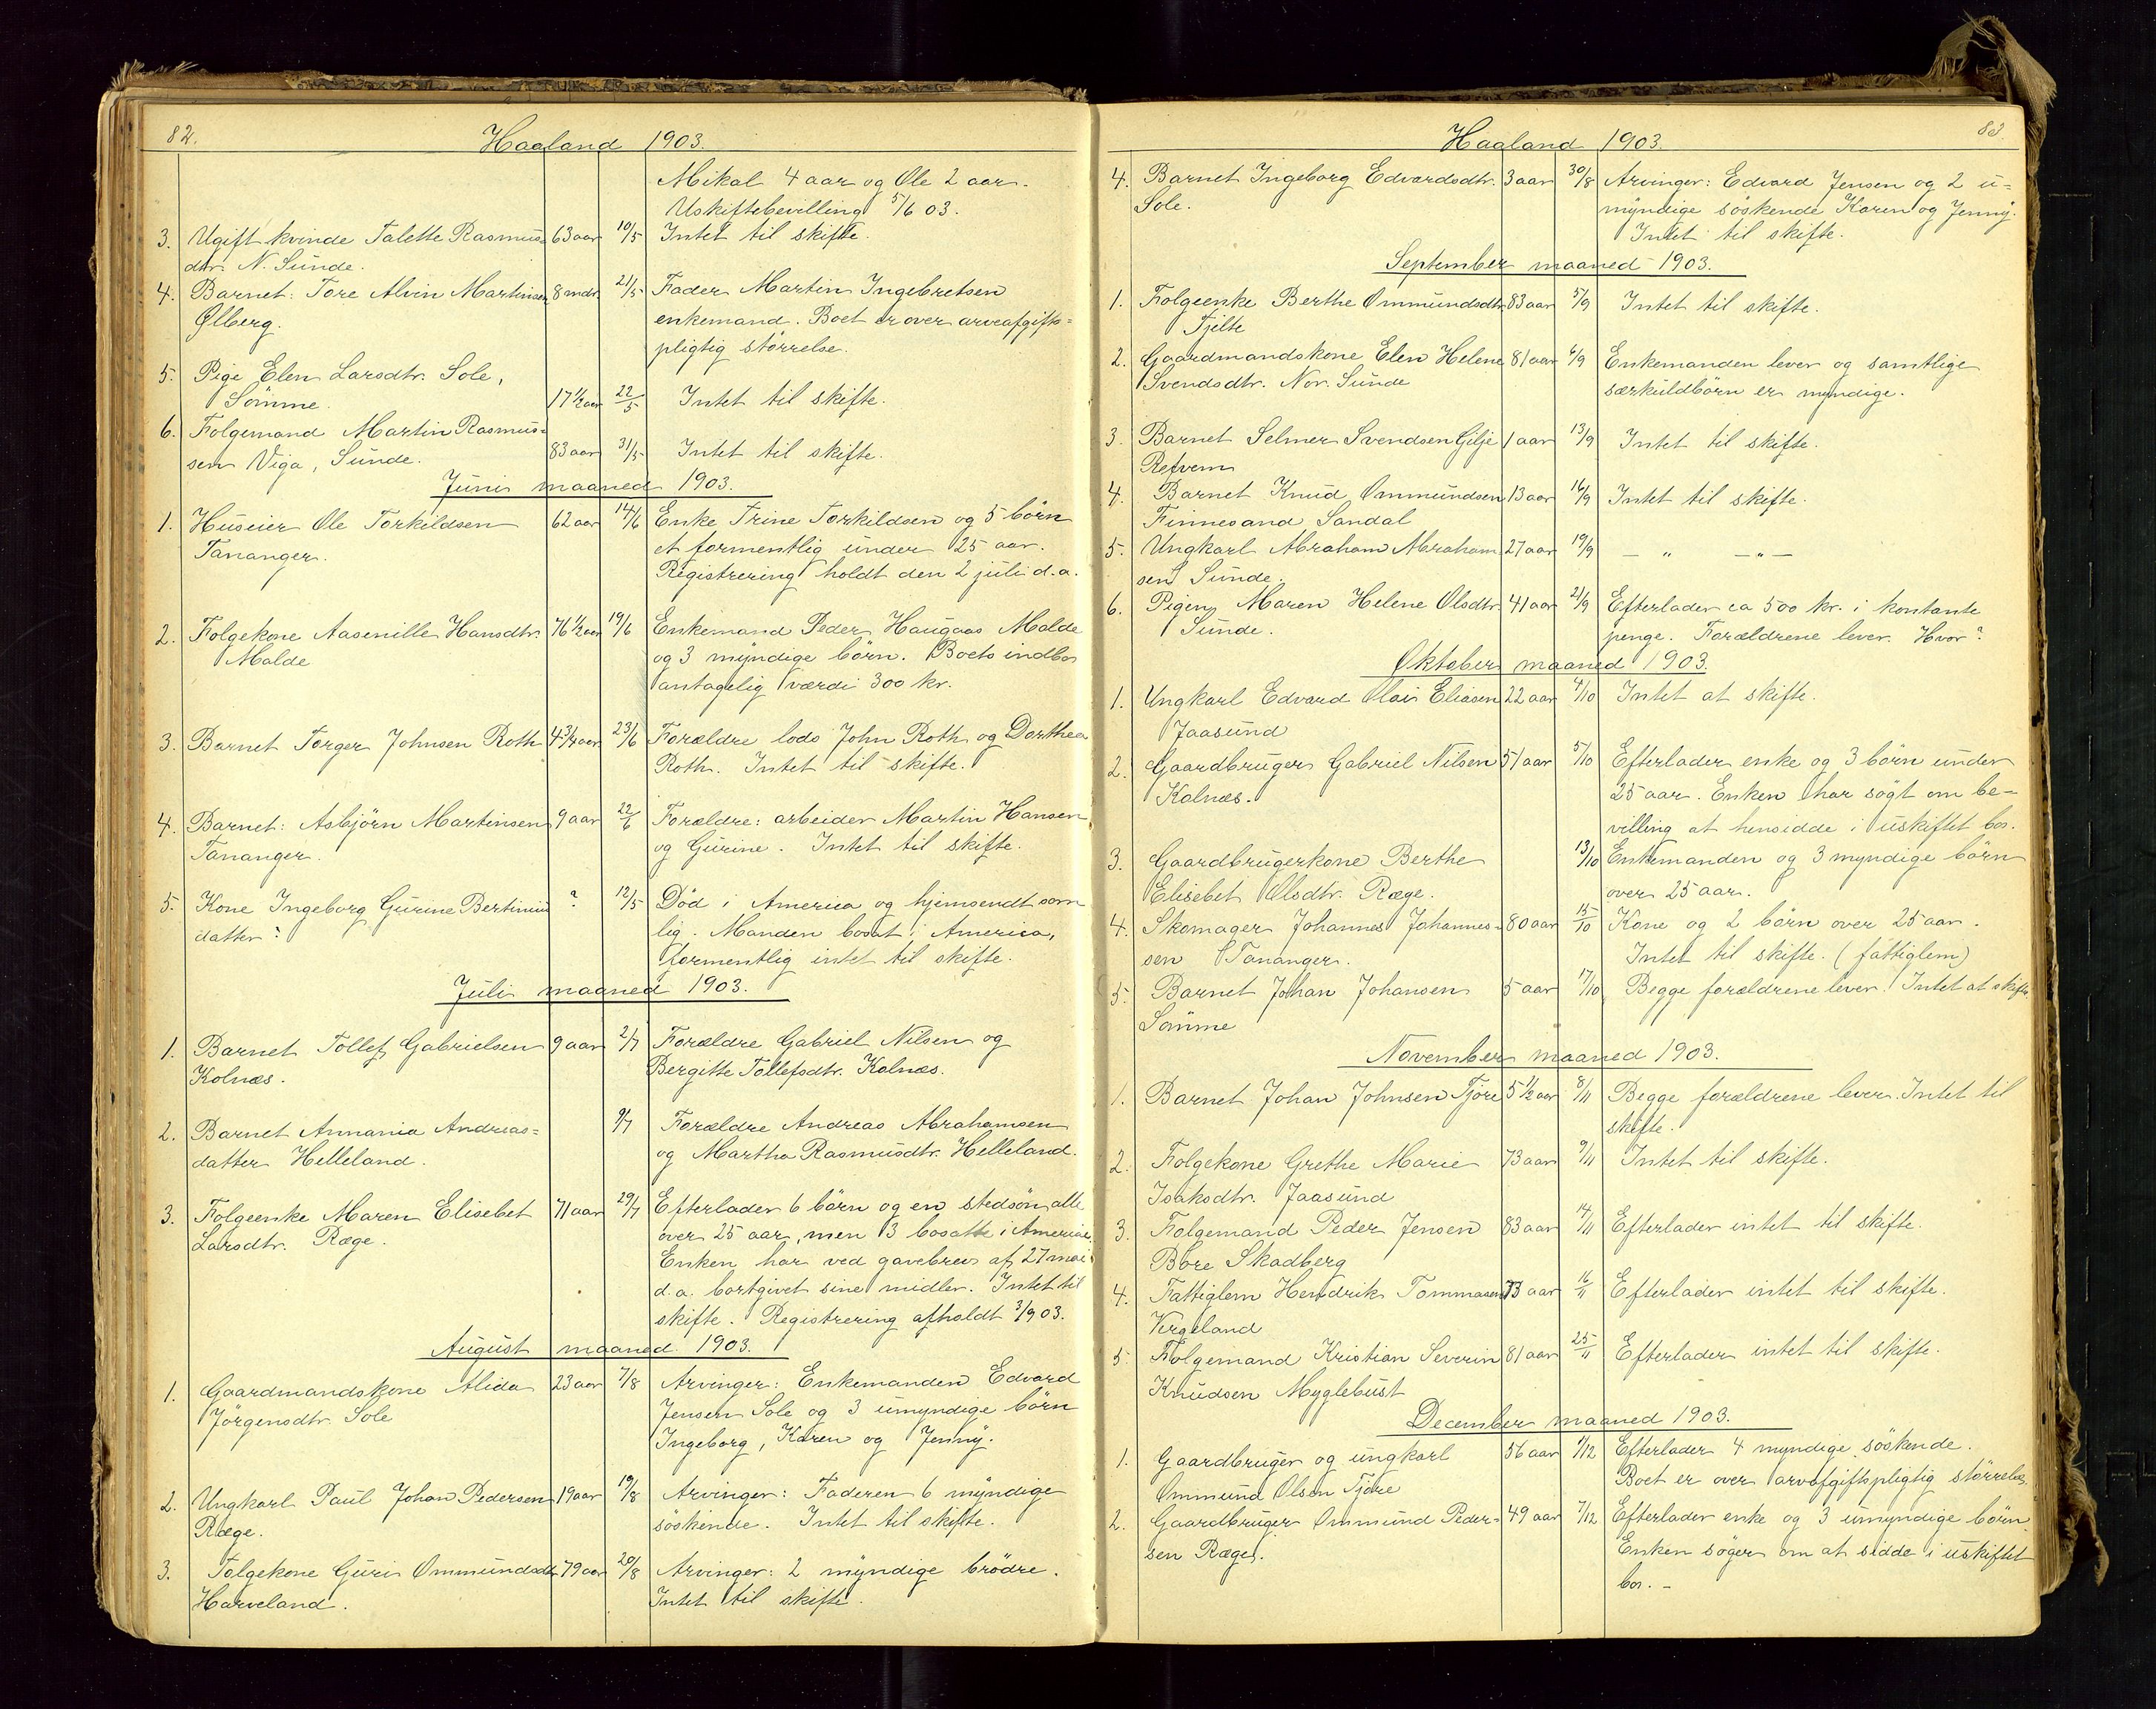 82.
Haaland 1903.
Mikal 4 aar og Ole 2 aar.
Uskiftebevilling 5/6 03.
3. Ugift kvinde Talette Rasmus= 63 aar 10/5 Intet til skifte.
dtr. N. Sunde.
4. Barnet: Tore Alvin Martinsen 8 mdr. 21/5 Fader Martin Ingebretsen
Ølberg. enkemand. Boet er over arveafgifts=
pligtig størrelse.
5. Pige Elen Larsdtr. Sole,
Sömme. 17 1/2 aar 22/5 Intet til skifte.
6. Folgemand Martin Rasmus=
sen Viga, Sunde. 83 aar 31/5 Intet til skifte.
Juni maaned 1903.
1. Huseier Ole Torkildsen 62 aar 14/6 Enke Trine Torkildsen og 5 börn
Tananger. et formentlig under 25 aar.
Registrering holdt den 2 juli d.a.
2. Folgekone Aasenille Hansdtr. 76 1/2 aar 19/6 Enkemand Peder Haugaas Malde
Malde og 3 myndige börn. Boets indbo
antagelig værdi 300 kr.
3. Barnet Torger Johnsen Roth 4 3/4 aar 23/6 Forældre lods John Roth og Dorthea
Roth. Intet til skifte.
4. Barnet: Asbjörn Martinsen 9 aar 22/6 Forældre: arbeider Martin Hansen
Tananger. og Gurine. Intet til skifte.
5. Kone Ingeborg Gurine Bertinius ? 12/5 Död i America og hjemsendt som
datter? lig. Manden bosat i America,
formentlig intet til skifte.
Juli maaned 1903.
1. Barnet Tollef Gabrielsen 9 aar 2/7 Forældre Gabriel Nilsen og
Kolnæs. Bergitte Tollefsdtr. Kolnæs.
2. Barnet Annania Andreas= 9/7 Forældre Andreas Abrahamsen
datter Helleland. og Martha Rasmusdtr. Helleland.
3. Folgeenke Maren Elisebet 71 aar 29/7 Efterlader 6 börn og en stedsön, alle
Larsdtr. Ræge. over 25 aar, men 3 bosatte i America.
Enken har ved gavebrev af 27 mai
d.a. bortgivet sine midler. Intet til
skifte. Registrering afholdt 3/9 03.
August maaned 1903.
1. Gaardmandskone Alida 23 aar 7/8 Arvinger: Enkemanden Edvard
Jörgensdtr. Sole Jensen Sole og 3 umyndige börn
Ingeborg, Karen og Jenny.
2. Ungkarl Paul Johan Pedersen 19 aar 19/8 Arvinger: Faderen 6 myndige
Ræge. söskende. Intet til skifte.
3. Folgekone Guri Ommundsdtr. 79 aar 20/8 Arvinger: 2 myndige brödre.
Harveland. Intet til skifte.
83.
Haaland 1903.
4. Barnet Ingeborg Edvardsdtr. 3 aar 30/8 Arvinger: Edvard Jensen og 2 u=
Sole. myndige söskende Karen og Jenny.
Intet til skifte.
September maaned 1903.
1. Folgeenke Berthe Ommundsdtr. 83 aar 5/9 Intet til skifte.
Tjelte
2. Gaardmandskone Elen Helene 81 aar 6/9 Enkemanden lever og samtlige
Svendsdtr. Nor. Sunde særkuldbörn er myndige.
3. Barnet Selmer Svendsen Gilje 1 aar 13/9 Intet til skifte.
Refvem
4. Barnet Knud Ommundsen 13 aar 16/9 Intet til skifte.
Finnesand Sandal
5. Ungkarl Abraham Abraham 27 aar 19/9 — " — " —
sen Sunde.
6. Pigen Maren Helene Olsdtr. 41 aar 21/9 Efterlader ca 500 kr. i kontante
Sunde. penge. Forældrene lever. Hvor?
Oktober maaned 1903.
1. Ungkarl Edvard Olai Eliasen 22 aar 4/10 Intet at skifte.
Jaasund
2. Gaardbruger Gabriel Nilsen 51 aar 5/10 Efterlader enke og 3 börn under
Kolnæs. 25 aar. Enken har sögt om be=
villing at hensidde i uskiftet bo.
3. Gaardbrugerkone Berthe 13/10 Enkemanden og 3 myndige börn
Elisebet Olsdtr. Ræge. over 25 aar.
4. Skomager Johannes Johannes= 80 aar 15/10 Kone og 2 börn over 25 aar.
sen Tananger. Intet til skifte. (fattiglem)
5. Barnet Johan Johansen 5 aar 17/10 Begge forældrene lever. Intet at skifte
Sömme
November maaned 1903.
1. Barnet Johan Johnsen Tjöre 5 1/2 aar 8/11 Begge forældrene lever. Intet til
skifte.
2. Folgekone Grethe Marie 73 aar 9/11 Intet til skifte.
Isaksdtr. Jaasund
3. Folgemand Peder Jensen 83 aar 14/11 Efterlader intet til skifte.
Böre Skadberg
4. Fattiglem Hendrik Tommasen 73 aar 16/11 Efterlader intet til skifte.
Vergeland
5. Folgemand Kristian Severin 81 aar 25/11 Efterlader intet til skifte.
Knudsen Myglebust
December maaned 1903.
1. Gaardbruger og ungkarl 56 aar 1/12 Efterlader 4 myndige söskende.
Ommund Olsen Tjöre Boet er over arvafgiftspligtig störrelse.
2. Gaardbruger Ommund Peder= 49 aar 7/12 Efterlader enke og 3 umyndige börn.
sen Ræge. Enken söger om at sidde i uskiftet
bo. –